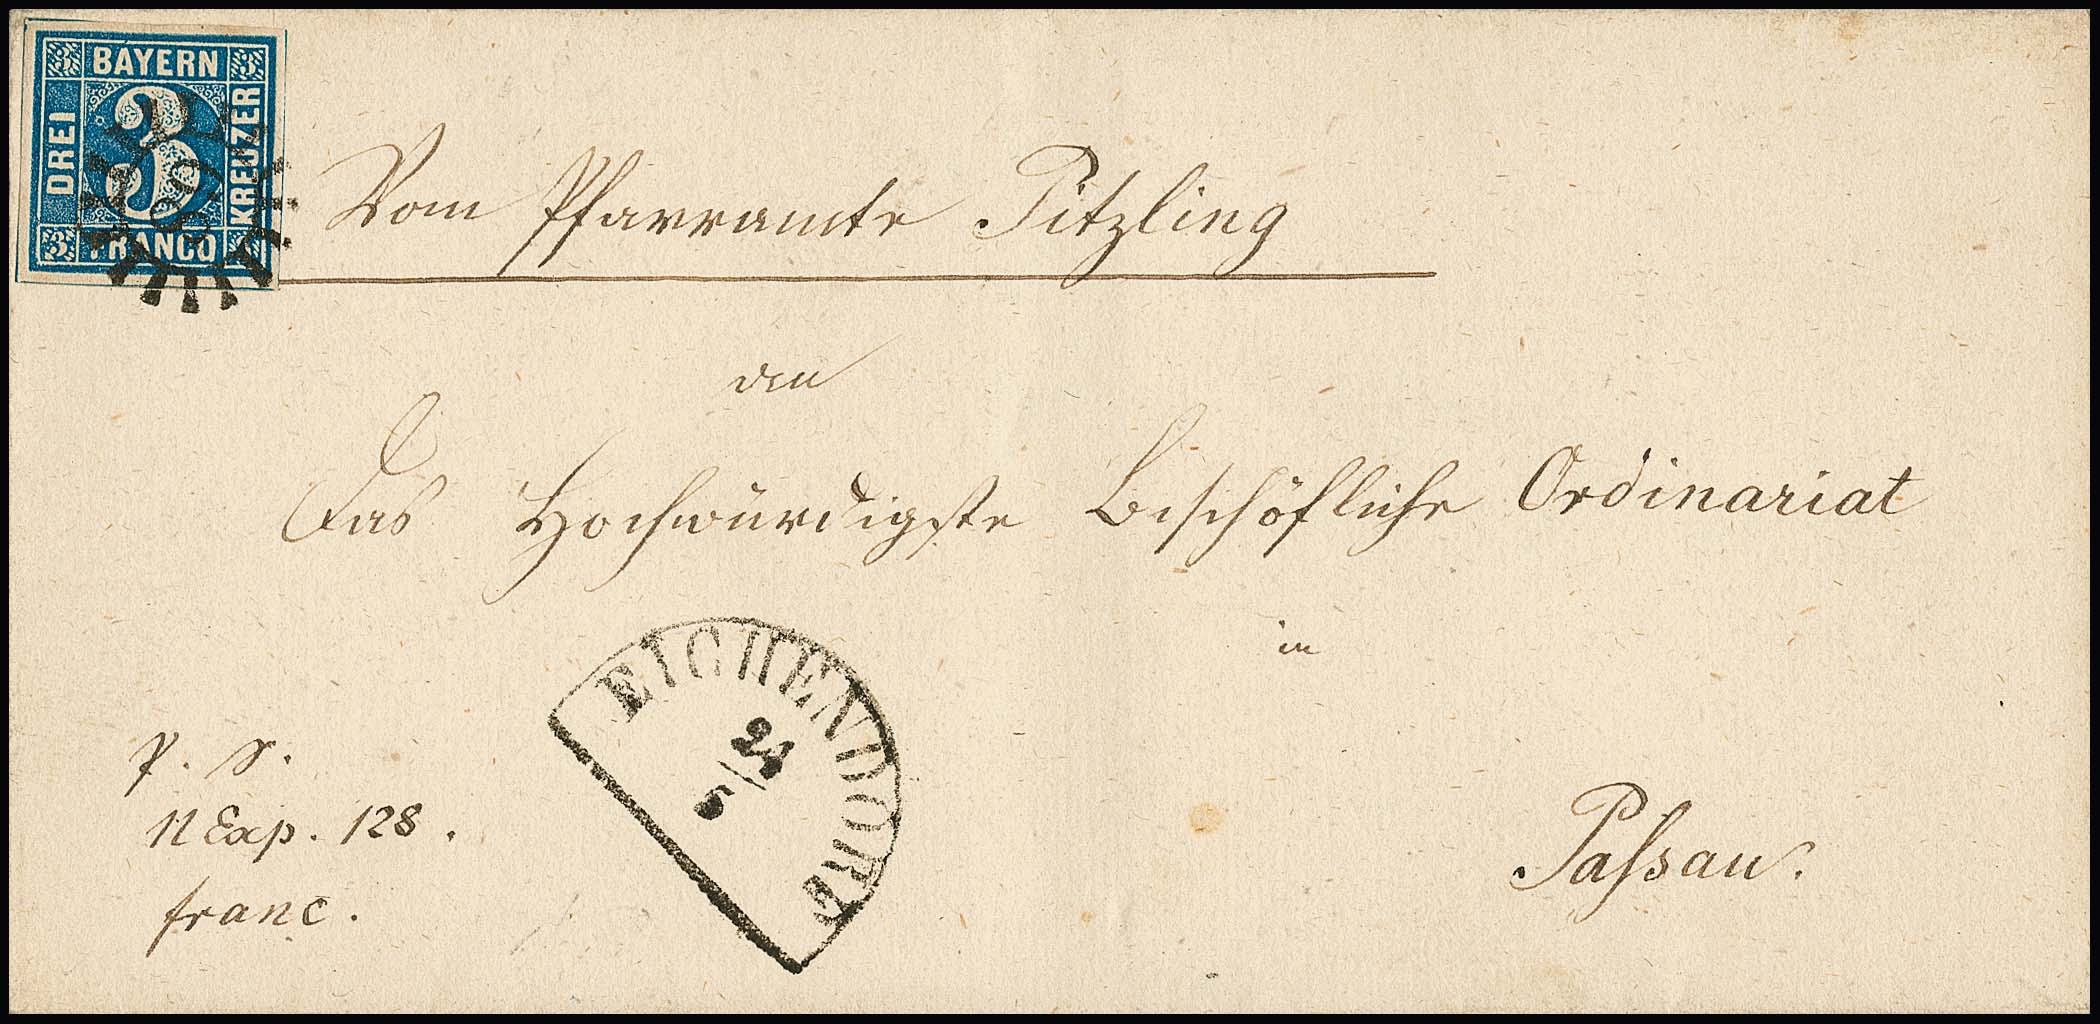 3 BAYERN 3
DREI 3 KREUZER
3 FRANCO 3
Vom Pfarramte Pitzling
an
Das Hochwürdigste Bischöfliche Ordinariat
in
EICHENDORF
24
5
P. S.
N Exp. 128.
Passau.
franc.